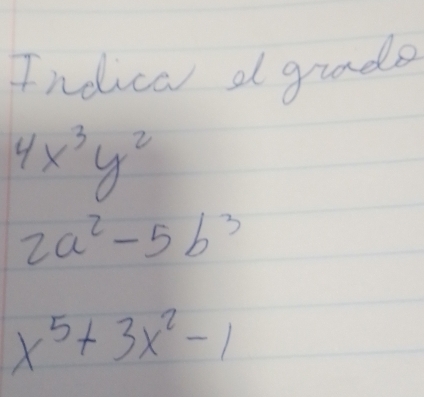 Indica el grado
4x³y²
2a² - 5b³
x⁵ + 3x² - 1